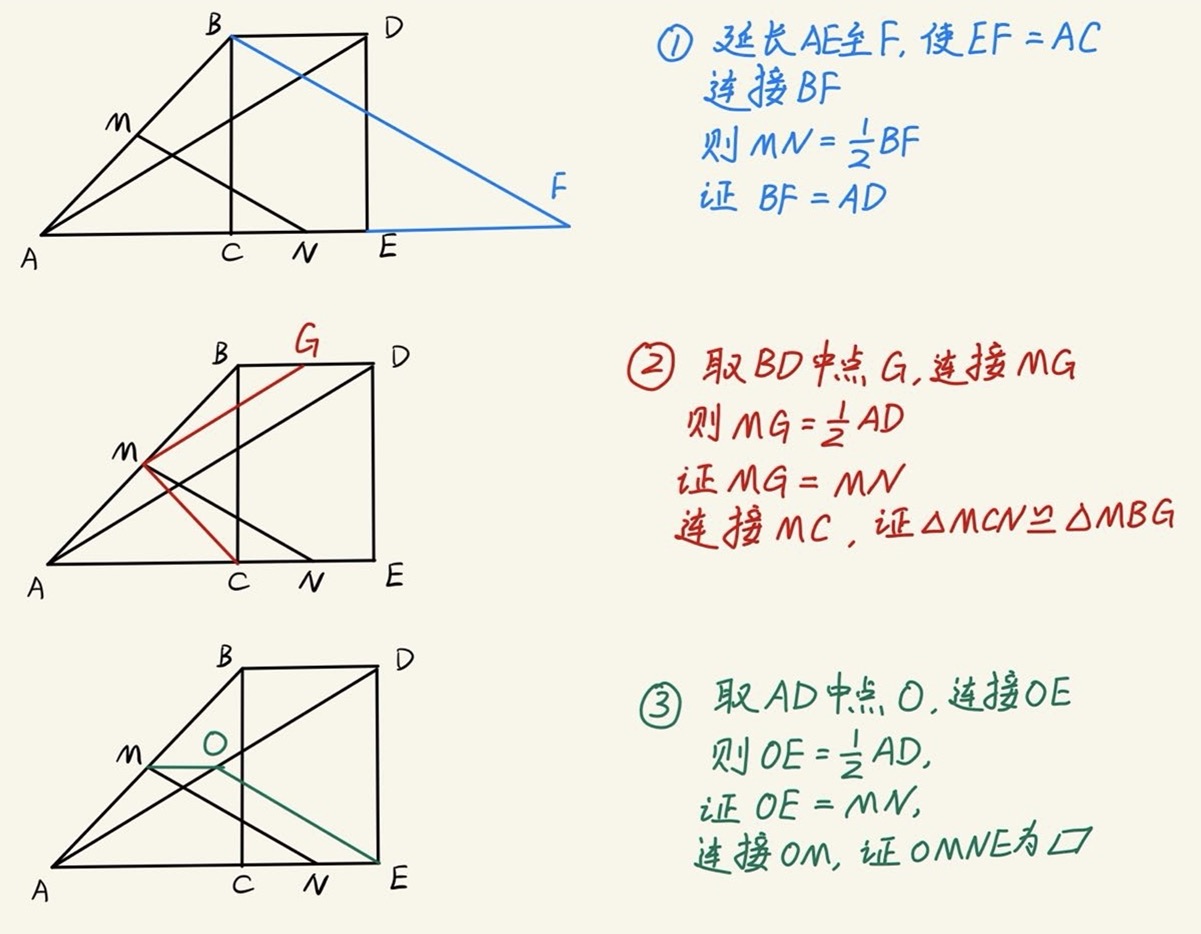 B D
M
F
A C N E
① 延长AE至F, 使EF = AC
连接BF
则 MN = 1/2 BF
证 BF = AD
B G D
M
A C N E
② 取BD中点G, 连接MG
则 MG = 1/2 AD
证 MG = MN
连接MC, 证△MCN≌△MBG
B D
M O
A C N E
③ 取AD中点O, 连接OE
则 OE = 1/2 AD,
证 OE = MN,
连接OM, 证OMNE为▱